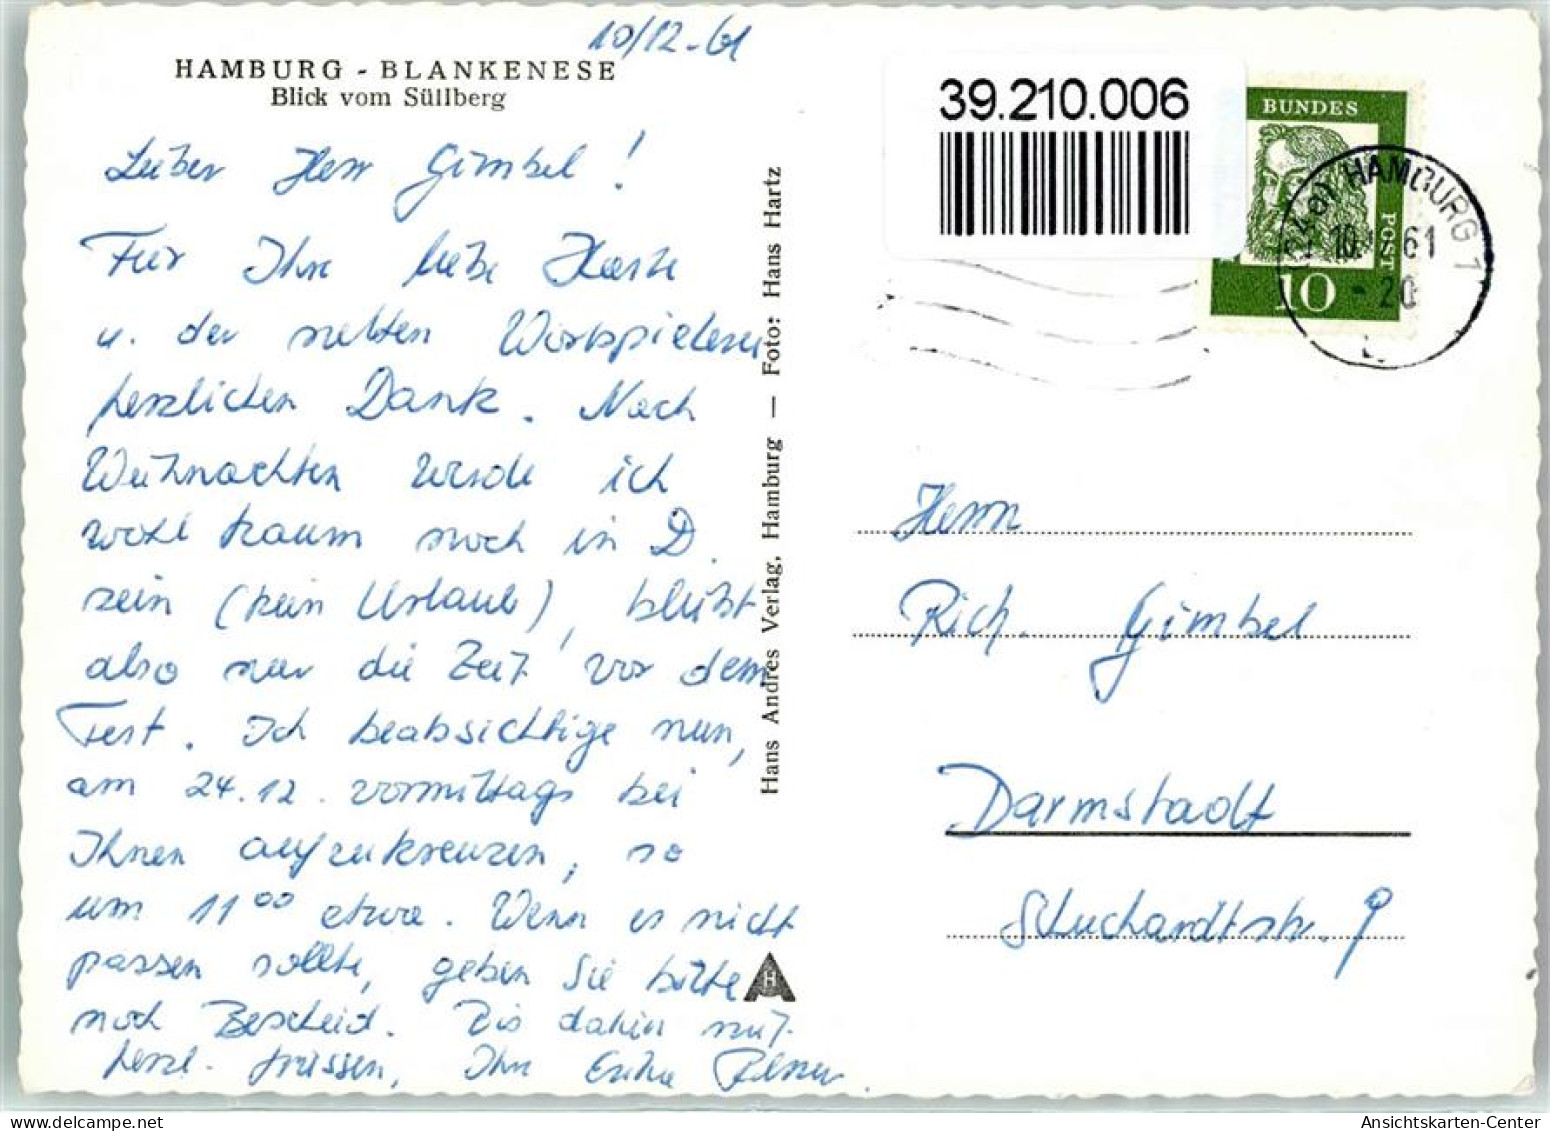 10/12-61
HAMBURG - BLANKENESE
Blick vom Süllberg
Lieber Herr Gimbel!
Für Ihre liebe Karte
u. der netten
herzlichen Dank. Nach
Weihnachten werde ich
wohl kaum noch in D.
sein (kein Urlaub), bleibt
also nur die Zeit vor dem
Fest. Ich beabsichtige nun,
am 24.12. vormittags bei
Ihnen aufzukreuzen, so
um 11⁰⁰ etwa. Wenn es nicht
passen sollte, geben Sie bitte
noch Bescheid. Bis dahin mit
herzl. Grüssen, Ihr
Hans Andres Verlag, Hamburg — Foto: Hans Hartz
H
39.210.006
BUNDES
POST
10
HAMBURG 1
10. 61
- 20
Herrn
Rich. Gimbel
Darmstadt
Stuchardtstr. 9
Ansichtskarten-Center